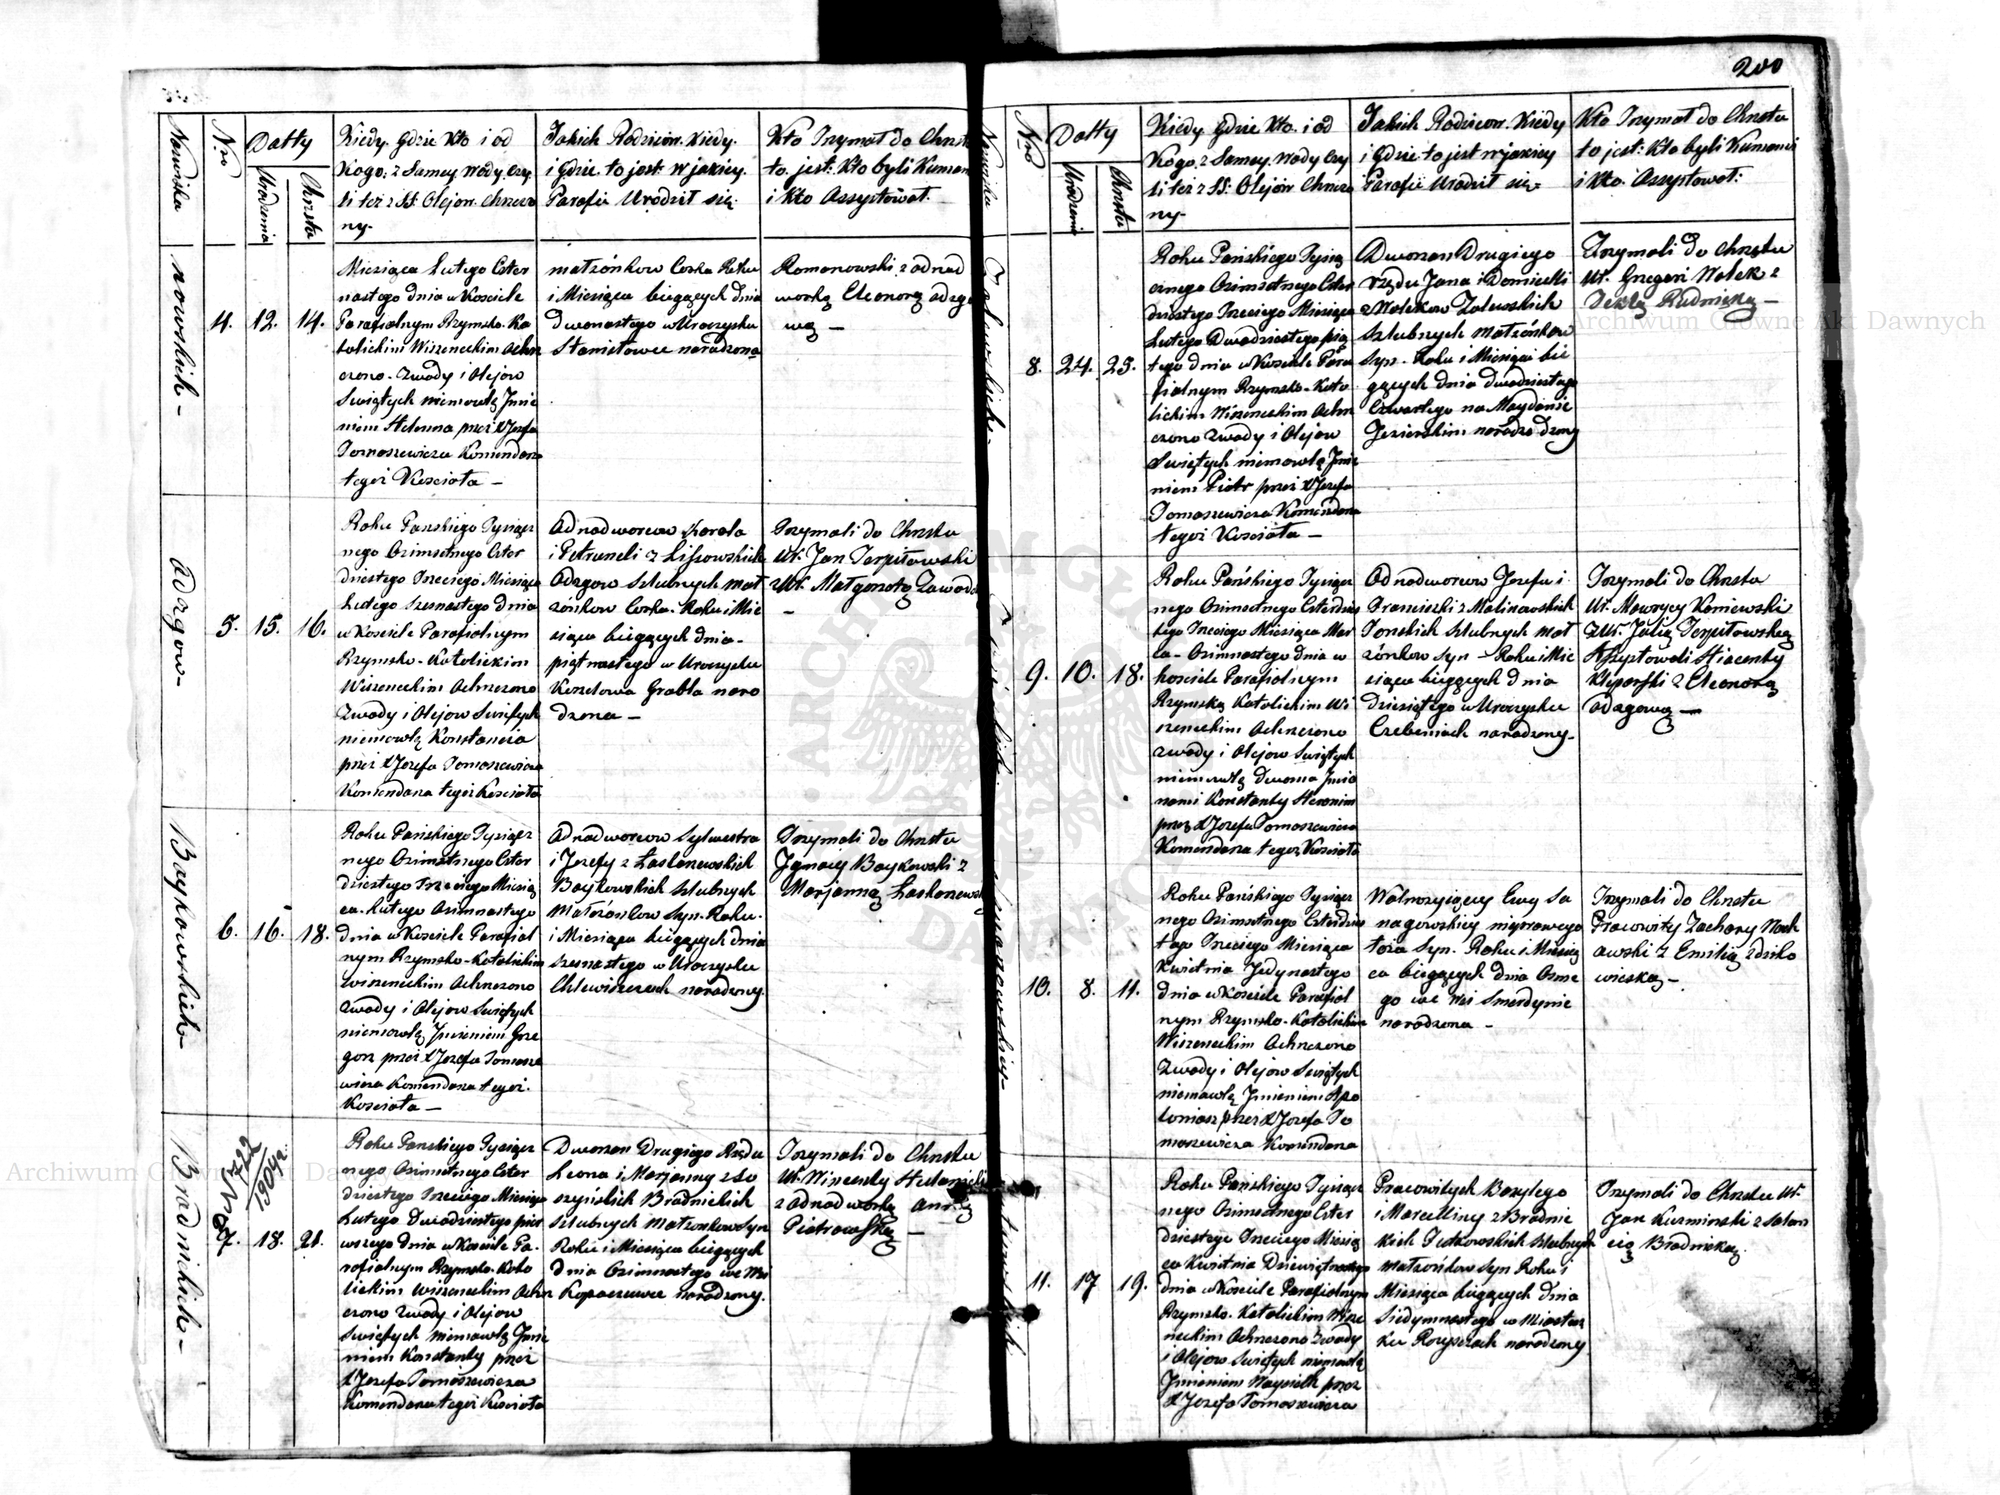 200
Nazwiska
Nro
Datty
Urodzenia
Chrztu
Kiedy. Gdzie Kto i od
Kogo: z Samey Wody czy
li też z SS: Olejow. Chrzczo
ny-
Jakich Rodziców. Kiedy.
i Gdzie. to jest: w jakiey.
Parafii Urodził się.
Kto Trzymał do Chrztu
to. jest: Kto byli Kumami
i Kto Assystował.
nowskich -
4.
12.
14.
Miesiąca Lutego Czter
nastego dnia w Kosciele
Parafialnym Rzymsko-Ka
tolickim Wiszeneckim Ochrz
czono. Zwody i Olejow
Swiętych niemowlę Jmie
niem Helenna przez X Jozefa
Tomaszewicza Komendarza
tegoż Kosciola -
małzónkow Corka Roku
i Miesiąca bieżących dnia
Dwonastego w Uroczysku
Stanisłowce narodzona
Romanowski z odnod
worką Eleonorą adzgo
wą -
Adzgow-
5.
15.
16.
Roku Panskiego Tysiącz
nego Osimsetnego Czter
dziestego Trzeciego Miesiąca
Lutego szesnastego dnia
w Kosciele Parafialnym
Rzymsko-Katolickim
Wiszeneckim Ochrzczono
Zwody i Olejow Swiętych
niemowlę Konstancia
przez X Jozefa Tomaszewicza
Komendarza tegoż Kosciola
Odnodworcow Karola
i Petruneli z Lissowskich
Adzgow Szlubnych mał
zónkow Corka. Roku i Mie
siąca bieżących dnia-
piątnastego w Uroczysku
Koszelowa Grabla naro
dzona -
Trzymali do Chrztu
Ur. Jan Terpiłowski
z Ur. Małgorzatą Zawadz
-
Baykowskich
6.
16.
18.
Roku Pańskiego Tysiącz
nego Osimsetnego Czter
dziestego Trzeciego Miesią
ca. Lutego Osimnastego
dnia w Kosciele Parafial
nym Rzymsko-Katolickim
Wiszeneckim Ochrzczono
Zwody i Olejow Swiętych
niemowlę Jmieniem Grze
gorz przez X Jozefa Tomasze
wicza Komendarza tegoż.
Kosciola -
Odnodworcow Sylwestra
i Jozefy z Laskonowskich
Baykowskich Szlubnych
Małzónkow Syn. Roku.
i Miesiąca bieżących dnia
szesnastego w Uroczysku
Chlewiszczach narodzony.
Trzymali do Chrztu
Jgnacy Baykowski z
Marjanną Laskonowsk
Brodnickich -
No 722
1904 r.
7.
18.
21.
Roku Panskiego Tysiącz
nego Osimsetnego Czter
dziestego Trzeciego Miesiąca
Lutego Dwadziestego pier
wszego dnia w Kosciele Pa-
rafialnym Rzymsko-Kato
lickim Wiszeneckim Ochrz
czono Zwody i Olejow
Swiętych niemowlę Jmie
niem Konstanty przez
X Jozefa Tomaszewicza
Komendarza tegoż Kosciola
Dworzan Drugiego Rzędu
Leona i Marjanny z Lo
szynskich Brodnickich
Szlubnych Małzonkow Syn
Roku i Miesiąca bieżących
dnia Osimnastego we Wsi
Kopaczewce narodzony.
Trzymali do Chrztu
Ur. Wincenty
z odnodworką Anną
Piotrowską -
Nazwiska
Nro
Datty
Urodzenia
Chrztu
Kiedy Gdzie Kto. i od
Kogo z Samey. Wody Czy
li też z SS: Olejów Chrzczo
ny-
Jakich Rodzicow. Kiedy
i Gdzie to jest w jakiey
Parafii Urodził się.
Kto Trzymał do Chrztu
to jest: Kto byli Kumami
i Kto. Assystował:
Zalewskich-
8.
24.
25.
Roku Pańskiego Tysią
cznego Osimsetnego Czter
dziestego Trzeciego Miesiąca
Lutego Dwadziestego pią
tego dnia w Kosciele Para
fialnym Rzymsko-Kato
lickim Wiszeneckim Ochrz
czono Zwody i Olejow
Swiętych niemowlę Jmie
niem Piotr przez X Jozefa
Tomaszewicza Komendarza
tegoż Kosciola -
Dworzan Drugiego
rzędu Jana i Domicelli
z Malekow Zalewskich
Szlubnych Małzónkow
Syn. Roku i Miesiąca bie
żących dnia dwadziestego
Czwartego na Maydanie
Jezierskim narodzony
Trzymali do Chrztu
Ur. Gregori Malek z
Teklą Rudnicką -
9.
10.
18.
Roku Pańskiego Tysiącz
nego Osimsetnego Czterdzies
tego Trzeciego Miesiąca Mar
ca- Osimnastego dnia w
Kosciele Parafialnym
Rzymsko Katolickim Wi
szeneckim Ochrzczono
Zwody i Olejow Swiętych
niemowlę Dwoma Jmio
nami Konstanty Heronim
przez X Jozefa Tomaszewicza
Komendarza tegoż Kosciola
Odnodworcow Jozefa i
Franciszki z Malinowskich
Tonskich Szlubnych mał
zónkow Syn - Roku i Mie
siąca bieżących dnia
Dziesiątego w Uroczysku
Czebeniach narodzony-
Trzymali do Chrztu
Ur. Mawrycy Koniewski
z Ur. Julią Terpiłowską
Assystowali Hiacenty
z Eleonorą
Adzgową -
10.
8.
11.
Roku Pańskiego Tysiącz
nego Osimsetnego Czterdzies
tego Trzeciego Miesiąca
Kwietnia Jedynastego
dnia w Kosciele Parafial
nym Rzymsko-Katolickim
Wiszeneckim Ochrzczono
Zwody i Olejow Swiętych
niemowlę Jmieniem Apo
loniasz przez X Jozefa To
maszewicza Komendarza
Wolnożyjącey Ewy Sa
nagowskiey nieprawego
łoża Syn. Roku i Miesią
ca bieżących dnia Osme
go we Wsi Smerdynie
narodzona -
Trzymali do Chrztu
Pracowity Zachary
z Emilią
11.
17
19.
Roku Pańskiego Tysiącz
nego Osimsetnego Czter
dziestego Trzeciego Miesią
ca Kwietnia Dziewiętnastego
dnia w Kosciele Parafialnym
Rzymsko-Katolickim Wisze
neckim Ochrzczono Zwody
i Olejow Swiętych niemowlę
Jmieniem Woyciech przez
X Jozefa Tomaszewicza
Pracowitych Bazylego
i Marcelliny z Brodnic
kich Szlubnych
małzonkow Syn Roku i
Miesiąca bieżących dnia
Siedymnastego w Miastecz
ku Rożyszczach narodzony
Trzymali do Chrztu Ur.
Jan Kuzminski z Salom
eią Brodnicką.
Archiwum Główne Akt Dawnych
Archiwum Główne Akt Dawnych